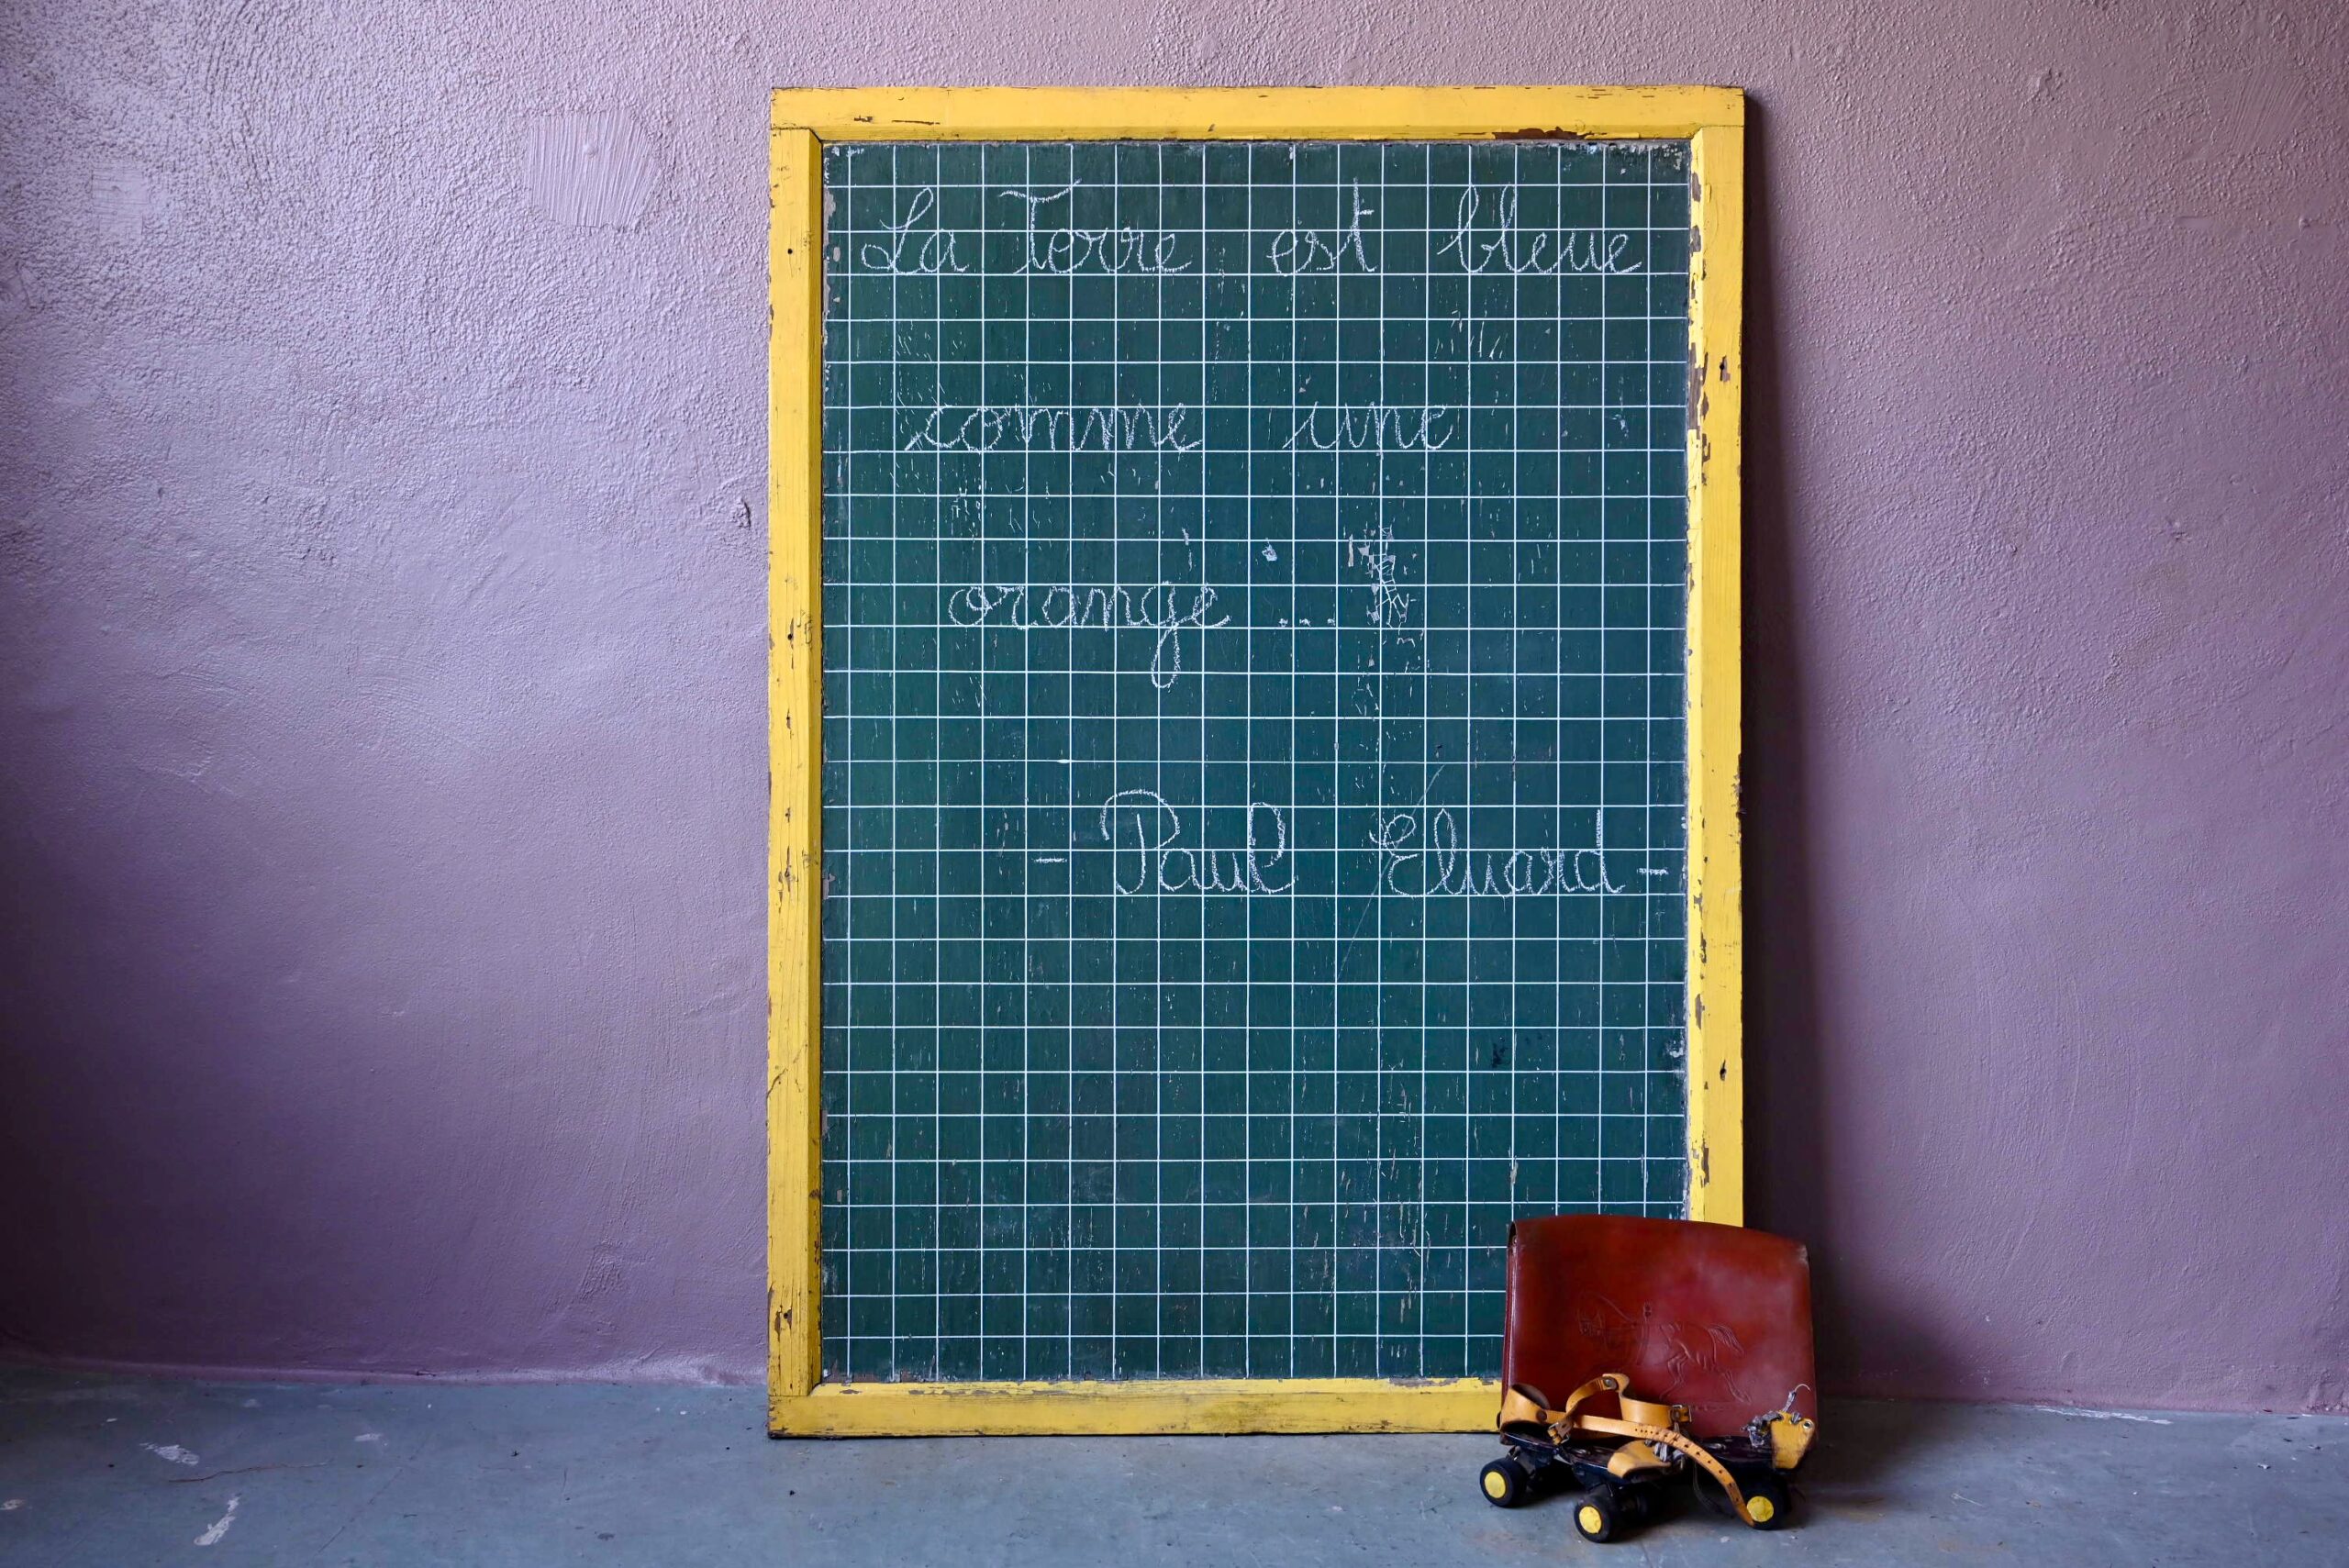 La Terre est bleue
comme une
orange ...
- Paul Eluard -